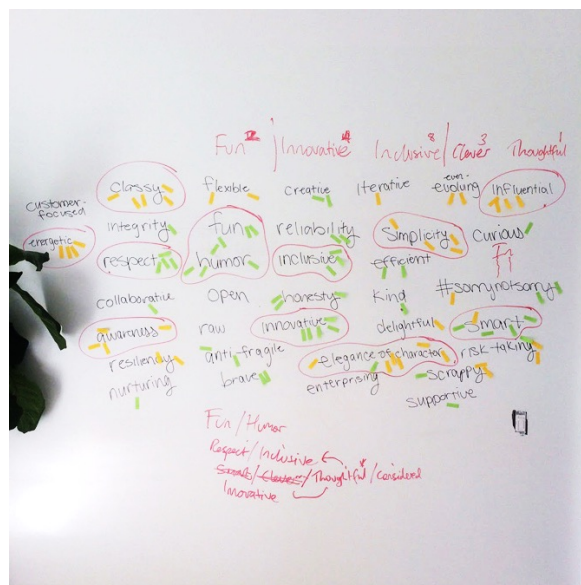 Fun Innovative 4 Inclusive 8 / Clever 3 Thoughtful 1
classy flexible creative iterative ever-evolving influential
customer-focused
integrity fun reliability simplicity curious
energetic respect humor inclusive efficient
collaborative open honesty kind #sorrynotsorry
awareness raw innovative delightful smart
resiliency anti-fragile elegance of character risk-taking
nurturing brave enterprising scrappy
supportive
Fun / Humor
Respect / Inclusive
Smart / Clever / Thoughtful / Considered
Innovative